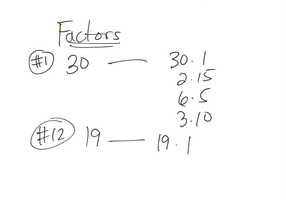 Factors
#1 30 — 30 · 1
2 · 15
6 · 5
3 · 10
#12 19 — 19 · 1